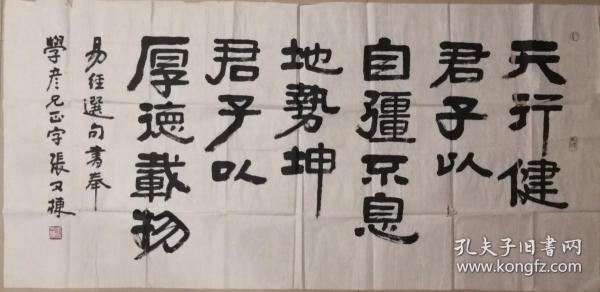 天行健
君子以
自彊不息
地勢坤
君子以
厚德載物
易經選句書奉
學彥兄正字張又棟
孔夫子旧書网
www.kongfz.com